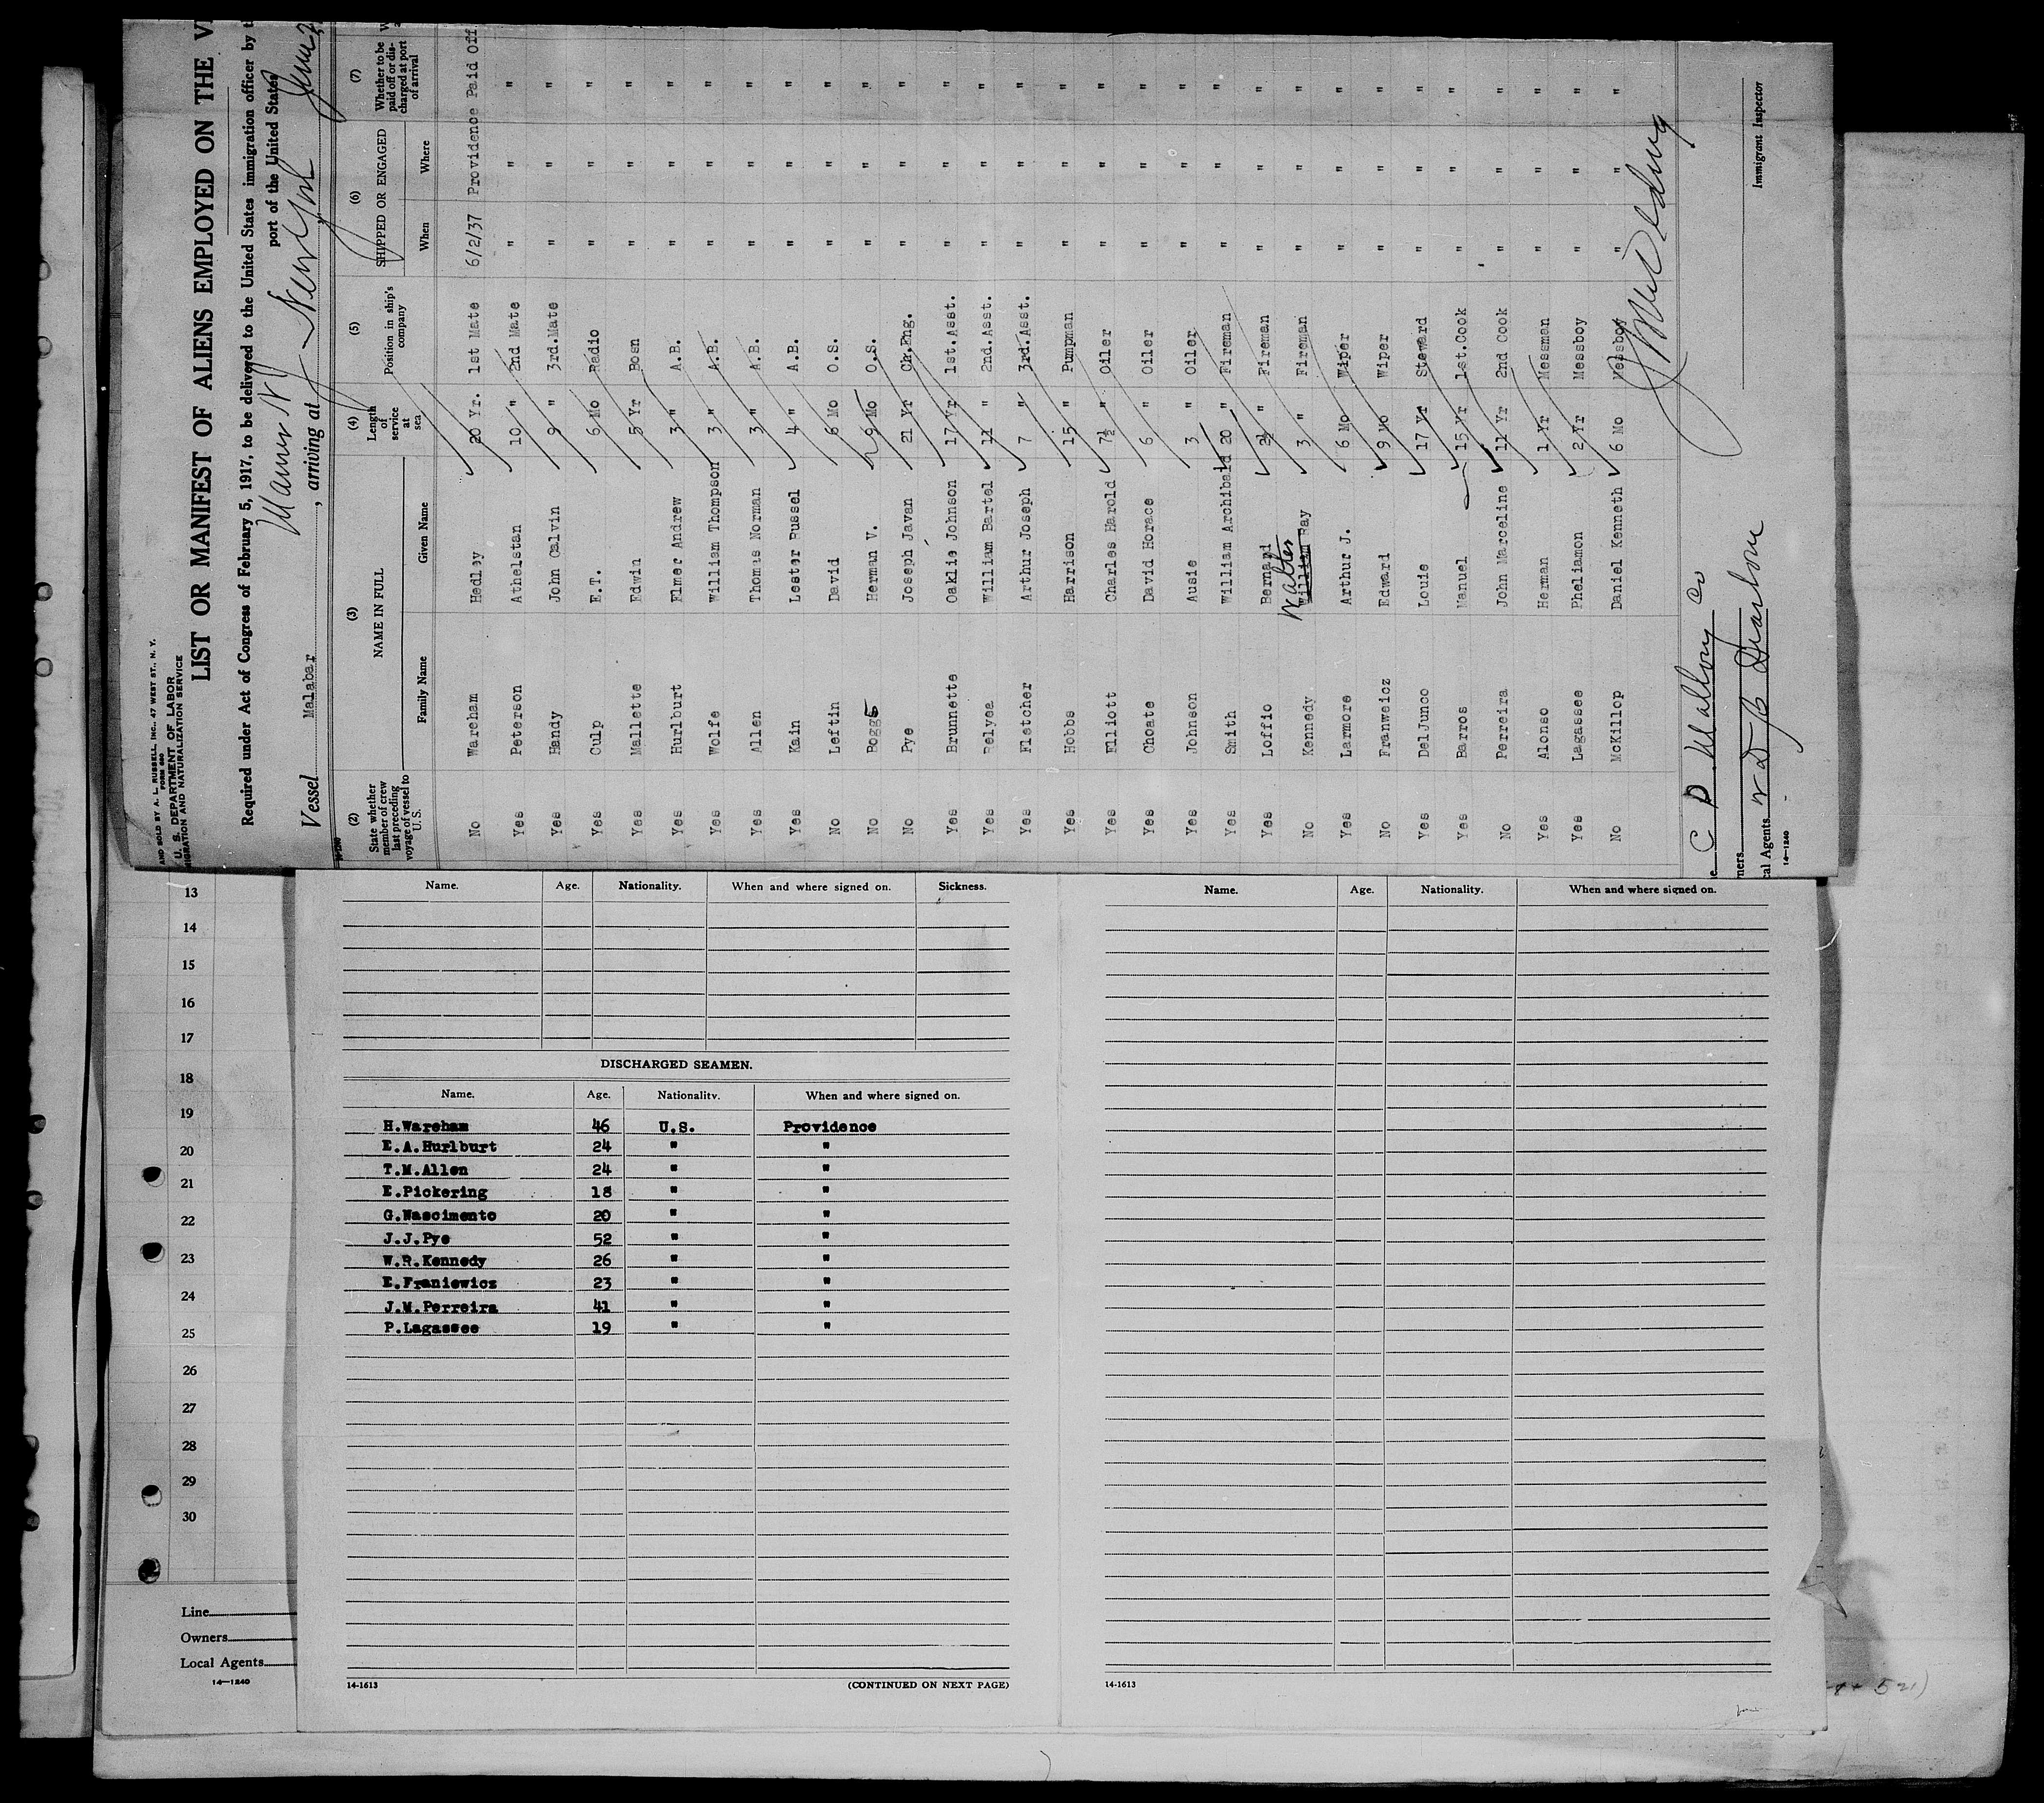 AND SOLD BY A. L. RUSSELL, INC., 47 WEST ST., N. Y.
FORM 680
U. S. DEPARTMENT OF LABOR
MIGRATION AND NATURALIZATION SERVICE
LIST OR MANIFEST OF ALIENS EMPLOYED ON THE V
Required under Act of Congress of February 5, 1917, to be delivered to the United States immigration officer by t
port of the United States
Vessel Malabar , arriving at New York June
(2) (3) (4) (5) (6) (7)
State whether member of crew last preceding voyage of vessel to U.S. NAME IN FULL Family Name Given Name Length of service at sea Position in ship's company SHIPPED OR ENGAGED When Where Whether to be paid off or discharged at port of arrival
No Wareham Hedley 20 Yr. 1st Mate 6/2/37 Providence Paid Off
Yes Peterson Athelstan 10 " 2nd Mate " " "
Yes Handy John Calvin 9 " 3rd.Mate " " "
Yes Culp E.T. 6 Mo Radio " " "
Yes Mallette Edwin 5 Yr Bosn " " "
Yes Hurlburt Elmer Andrew 3 " A.B. " " "
Yes Wolfe William Thompson 3 " A.B. " " "
Yes Allen Thomas Norman 3 " A.B. " " "
Yes Kain Lester Russel 4 " A.B. " " "
No Leftin David 6 Mo O.S. " " "
No Boggs Herman V. 9 Mo O.S. " " "
No Pye Joseph Javan 21 Yr Ch.Eng. " " "
Yes Brunnette Oaklie Johnson 17 Yr 1st.Asst. " " "
Yes Relyea William Bartel 12 " 2nd.Asst. " " "
Yes Fletcher Arthur Joseph 7 " 3rd.Asst. " " "
Yes Hobbs Harrison 15 " Pumpman " " "
Yes Elliott Charles Harold 7½ " Oiler " " "
Yes Choate David Horace 6 " Oiler " " "
Yes Johnson Ausie 3 " Oiler " " "
Yes Smith William Archibald 20 " Fireman " " "
Yes Loffio Bernard 2½ " Fireman " " "
No Kennedy Walter William Ray 3 " Fireman " " "
Yes Larmore Arthur J. 6 Mo Wiper " " "
No Franweicz Edward 9 Mo Wiper " " "
Yes DelJunco Louie 17 Yr Steward " " "
Yes Barros Manuel 15 Yr 1st.Cook " " "
No Perreira John Marceline 11 Yr 2nd Cook " " "
Yes Alonso Herman 1 Yr Messman " " "
Yes Lagassee Pheliamon 2 Yr Messboy " " "
No McKillop Daniel Kenneth 6 Mo Messboy " " "
C D Mallory Co
ners
cal Agents W D B
14-1240
Immigrant Inspector
13
14
15
16
17
18
19
20
21
22
23
24
25
26
27
28
29
30
Line
Owners
Local Agents
14-1240
Name. Age. Nationality. When and where signed on. Sickness.
DISCHARGED SEAMEN.
Name. Age. Nationality. When and where signed on.
H.Wareham 46 U.S. Providence
E.A.Hurlburt 24 " "
T.M.Allen 24 " "
E.Pickering 18 " "
G.Nascimento 20 " "
J.J.Pye 52 " "
W.R.Kennedy 26 " "
E.Franiewicz 23 " "
J.M.Perreira 41 " "
P.Lagassee 19 " "
14-1613 (CONTINUED ON NEXT PAGE)
Name. Age. Nationality. When and where signed on.
14-1613